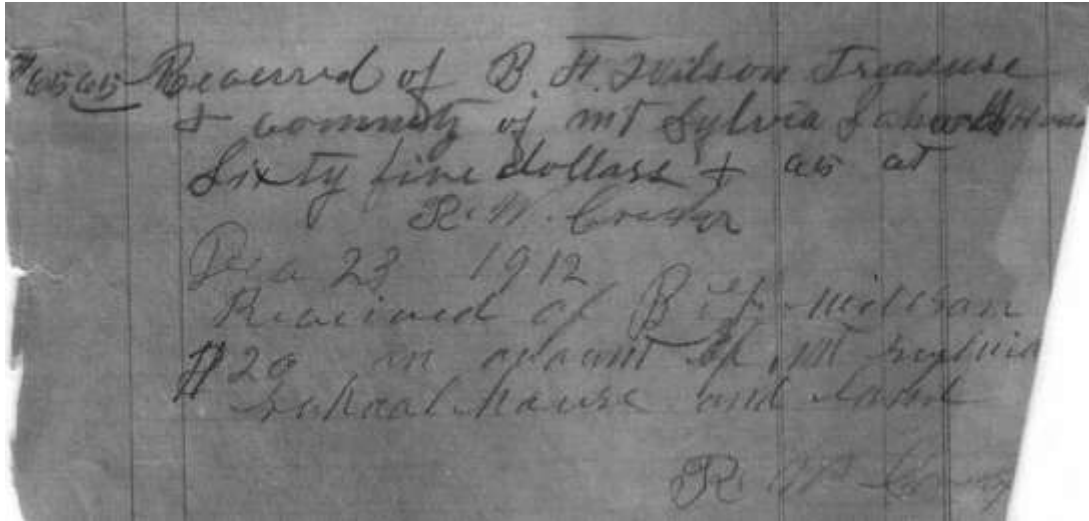 $65 65 Received of B. H. Wilson Treasure
& commity of mt Sylvia School House
Sixty five dollars & 65 ct
R. W.
Dec 23 1912
Received of B H Willson
$20 on acount of mt Sylvia
school house and land
R. W.